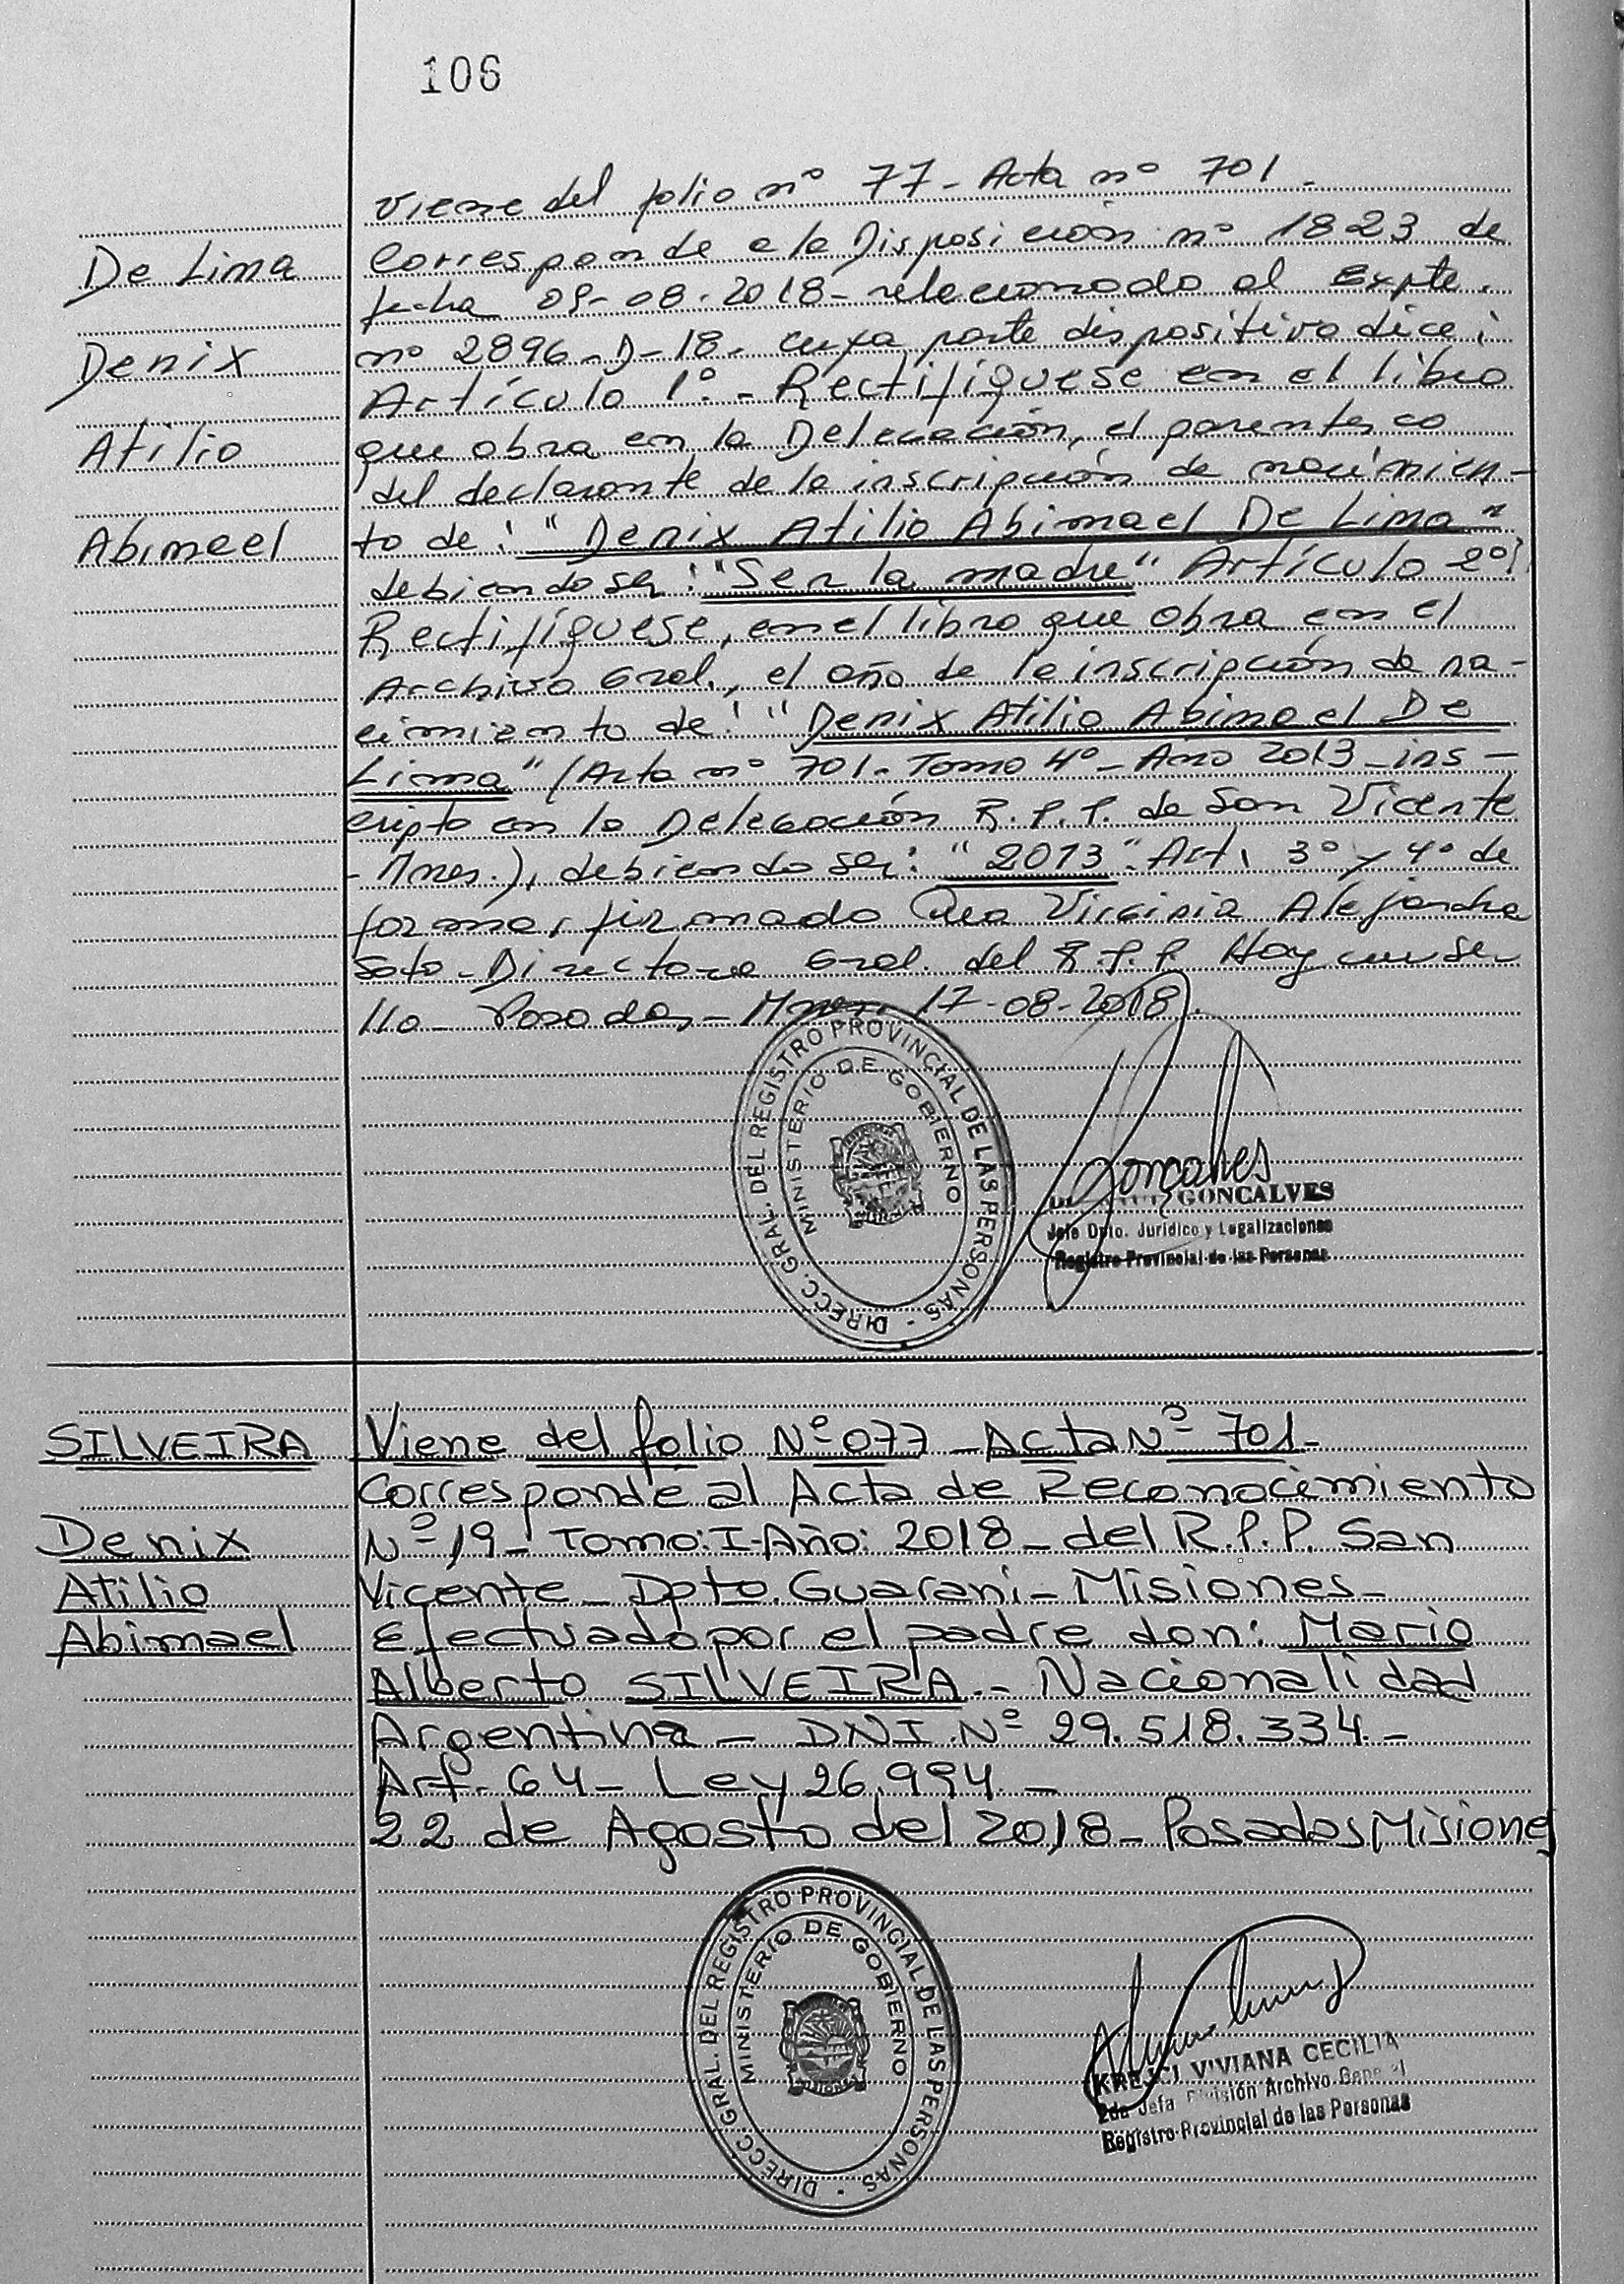 106
viene del folio nº 77 - Acta nº 701.
De Lima
Corresponde a la Disposición nº 1823 de
fecha 09-08-2018 - relacionado al Expte.
Denix
nº 2896-D-18. cuya parte dispositiva dice:
Artículo 1º. - Rectifíquese en el libro
Atilio
que obra en la Delegación, el parentesco
del declarante de la inscripción de nacimien-
Abimael
to de: "Denix Atilio Abimael De Lima"
debiendo ser: "Ser la madre" Artículo 2º:
Rectifíquese, en el libro que obra en el
Archivo Gral., el año de la inscripción de na-
cimiento de: "Denix Atilio Abimael De
Lima" (Acta nº 701 - Tomo 4º - Año 2013 - ins-
cripto en la Delegación R.P.P. de San Vicente
- Mnes.), debiendo ser: "2013". Art. 3º y 4º de
forma, firmado Virginia Alejandra
Soto - Directora Gral. del R.P.P. Hay un se-
llo - Posadas, - Mnes. 17-08-2018.
DIRECC. GRAL. DEL REGISTRO PROVINCIAL DE LAS PERSONAS -
MINISTERIO DE GOBIERNO
Goncalves
GONCALVES
Jefe Dpto. Jurídico y Legalizaciones
Registro Provincial de las Personas
SILVEIRA
Viene del folio Nº 077 - Acta Nº 701 -
Corresponde al Acta de Reconocimiento
Denix
Nº 19 - Tomo: I - Año: 2018 - del R.P.P. San
Atilio
Vicente - Dpto. Guarani - Misiones -
Abimael
Efectuado por el padre don: Mario
Alberto SILVEIRA. - Nacionalidad
Argentina - DNI. Nº 29.518.334. -
Art. 64 - Ley 26.994. -
22 de Agosto del 2018 - Posadas, Misiones
DIRECC. GRAL. DEL REGISTRO PROVINCIAL DE LAS PERSONAS -
MINISTERIO DE GOBIERNO
MISIONES
KREJCI VIVIANA CECILIA
2da Jefa División Archivo General
Registro Provincial de las Personas